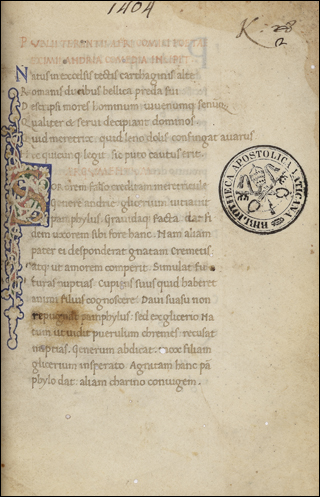 1404
K: 28
12
Natus in excelsis tectis carthaginis alte
Romanis ducibus bellica preda fui
Descripsi mores hominum iuvenumq; senum
Qualiter & serui decipiant dominos
Quid meretrix quid leno dolis confingat avarus
Hec quicunq; legit sic puto cautus erit
Sororem falso creditam meretricule
Genere andrie glicerium uitiauit
pamphylus. Grauidaq; facta dat fi
dem uxorem sibi fore hanc. Nam aliam
pater ei desponderat gnatam Cremetis.
Atq; ut amorem comperit. Simulat fu
turas nuptias. Cupiens suus quid haberet
animi filius cognoscere. Daui suasu non
repugnat pamphylus. sed ex glicerio na
tum ut uidit puerulum chremes recusat
nuptias. Generum abdicat. mox filiam
glicerium insperato. Agnitam hanc pā
phylo dat. aliam charino coniugem.
BIBLIOTHECA APOSTOLICA VATICANA